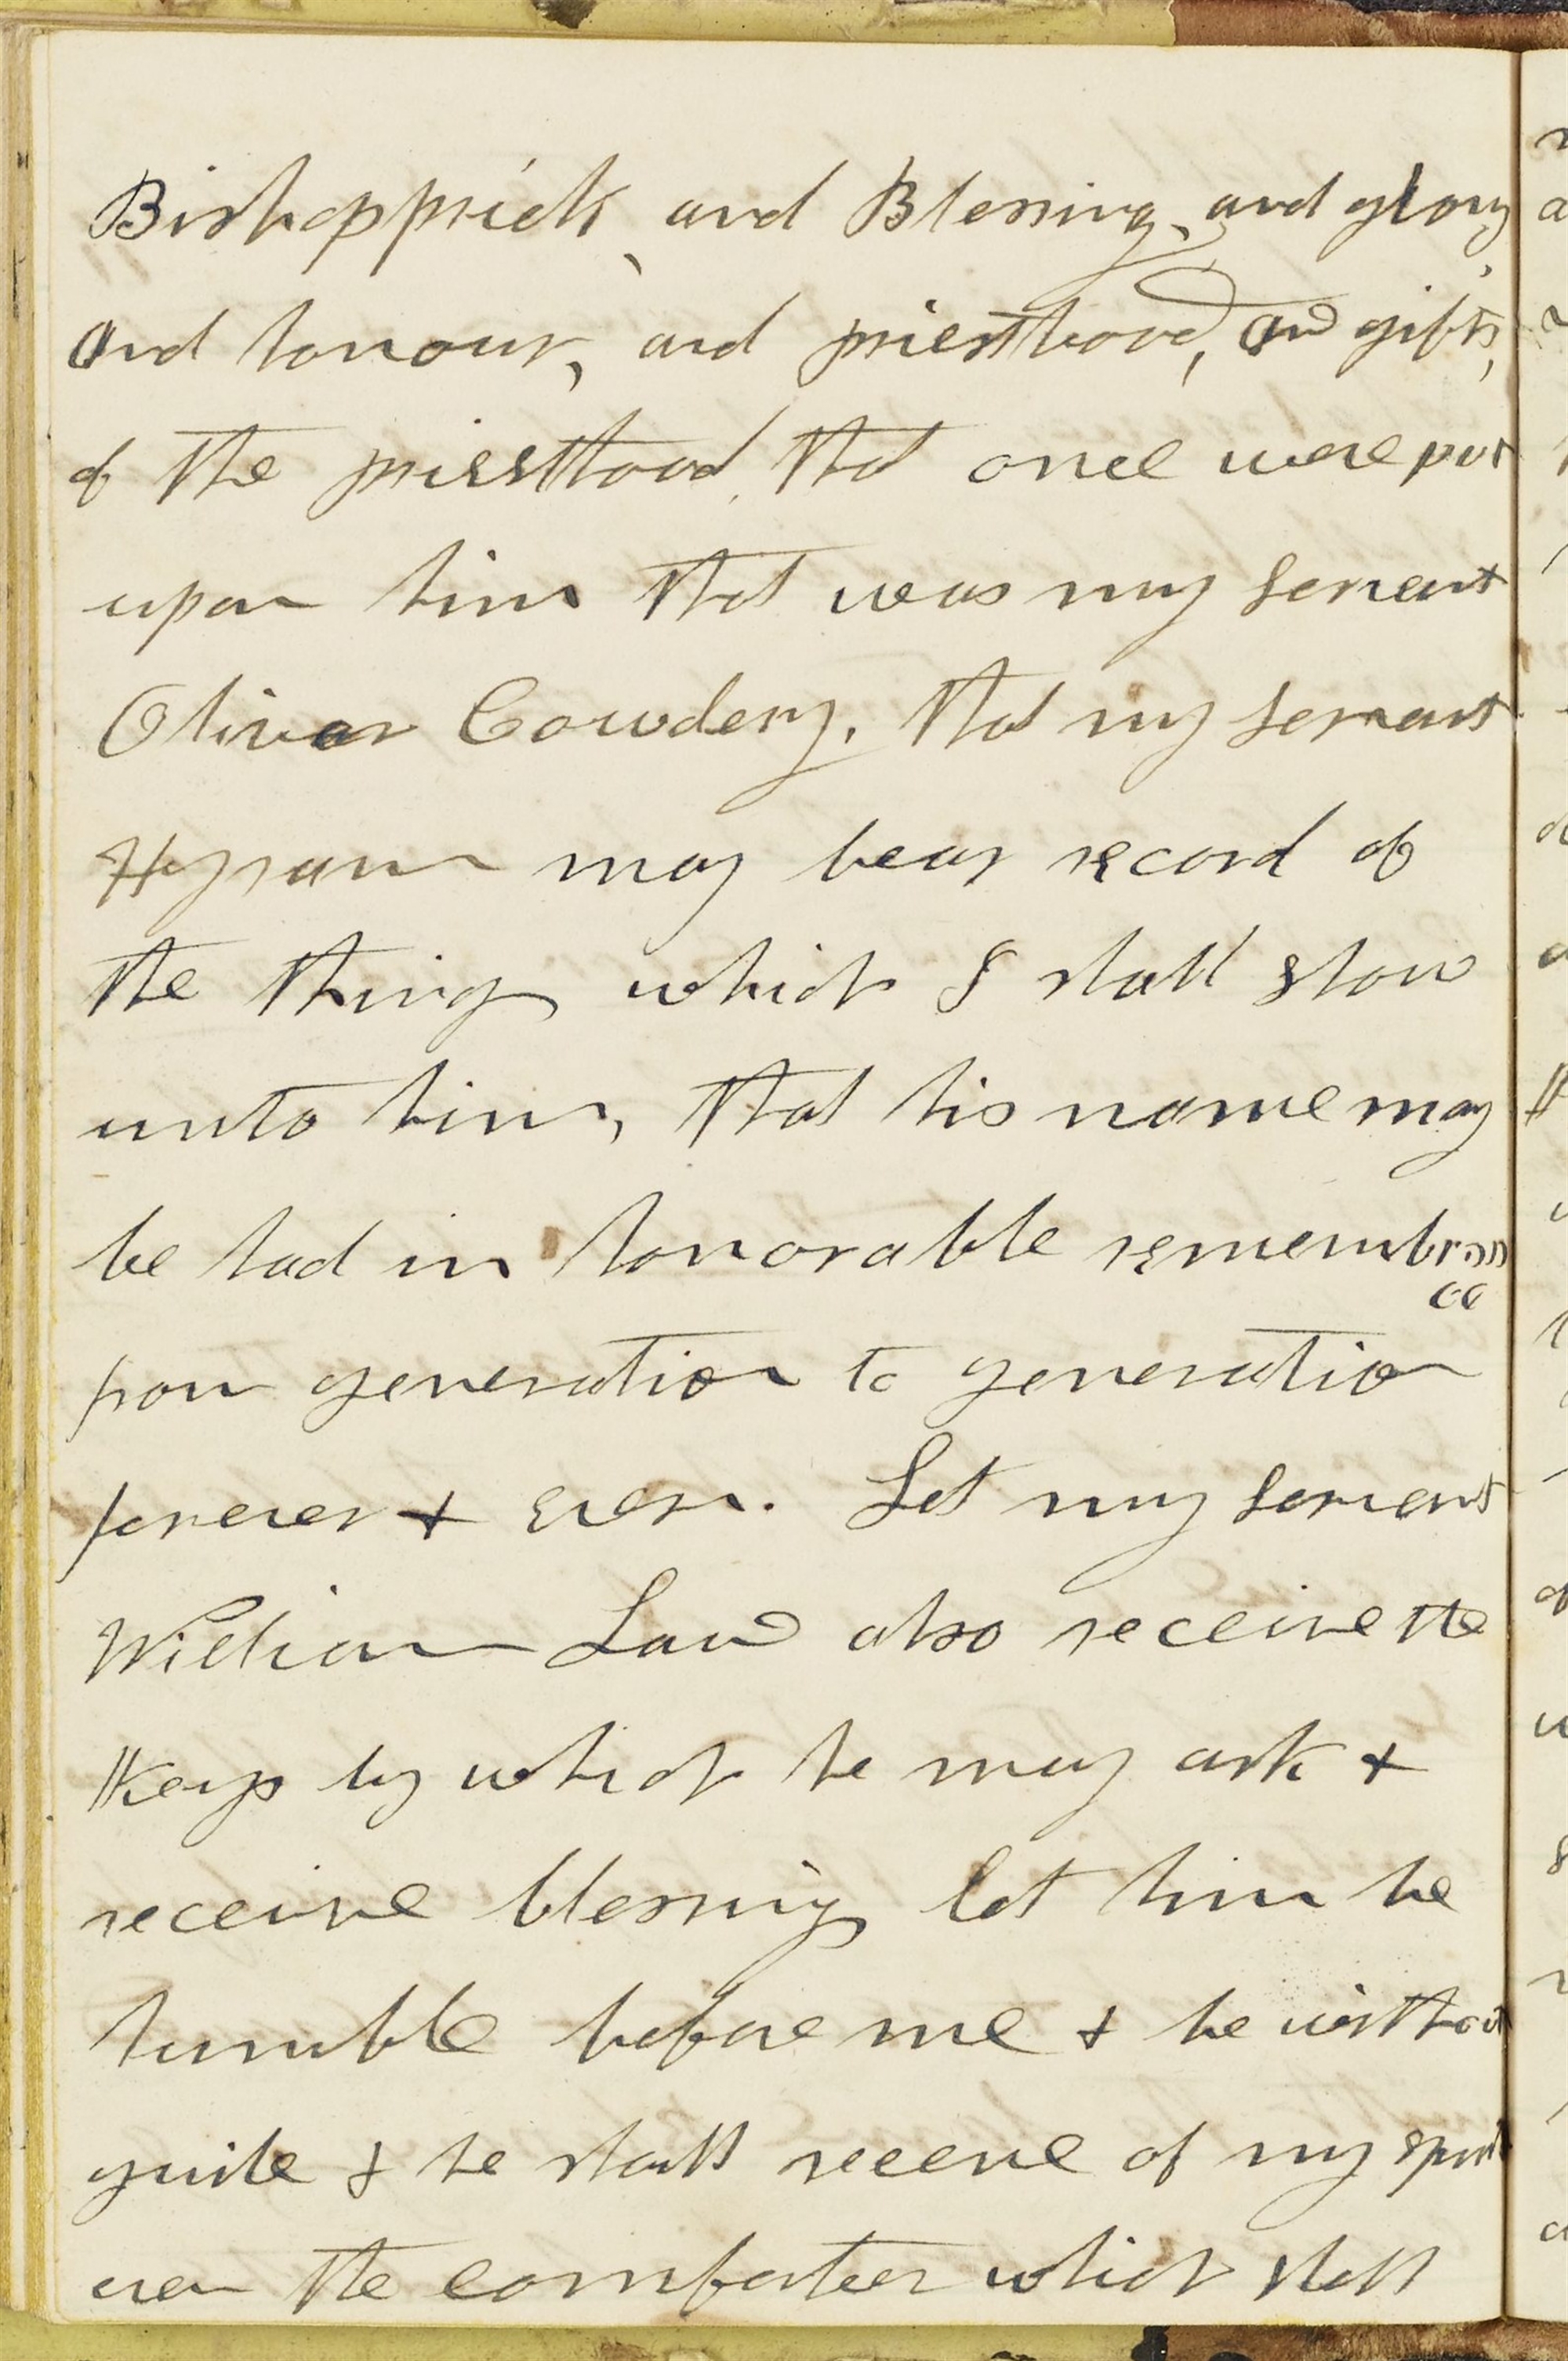 Bishopprick, and Blessing, and glory,
and honour, and priesthood, and gifts,
of the priesthood, that once were put
upon him that was my servant
Oliver Cowdery, that my servant
Hyram may bear record of
the things which I shall show
unto him, that his name may
be had in honorable remembran
ce
from generation to generation
forever & ever. Let my servant
William Law also receive the
Keys by which he may ask &
receive blessings let him be
humble before me & be without
guile & he shall receve of my spirit
even the comforter which shall